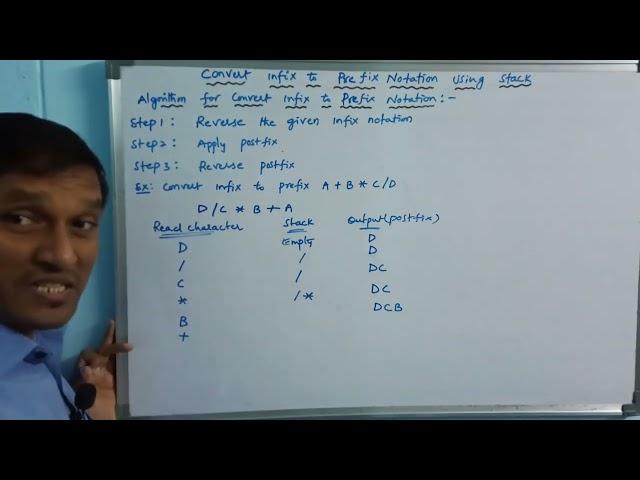 Convert Infix to Prefix Notation Using Stack
Algorithm for Convert Infix to Prefix Notation:-
Step1: Reverse the given Infix notation
Step2: Apply postfix
Step3: Reverse postfix
Ex: Convert Infix to prefix A + B * C / D
D / C * B + A
Read character Stack Output(postfix)
D Empty D
/ / D
C / DC
* / * DC
B DCB
+